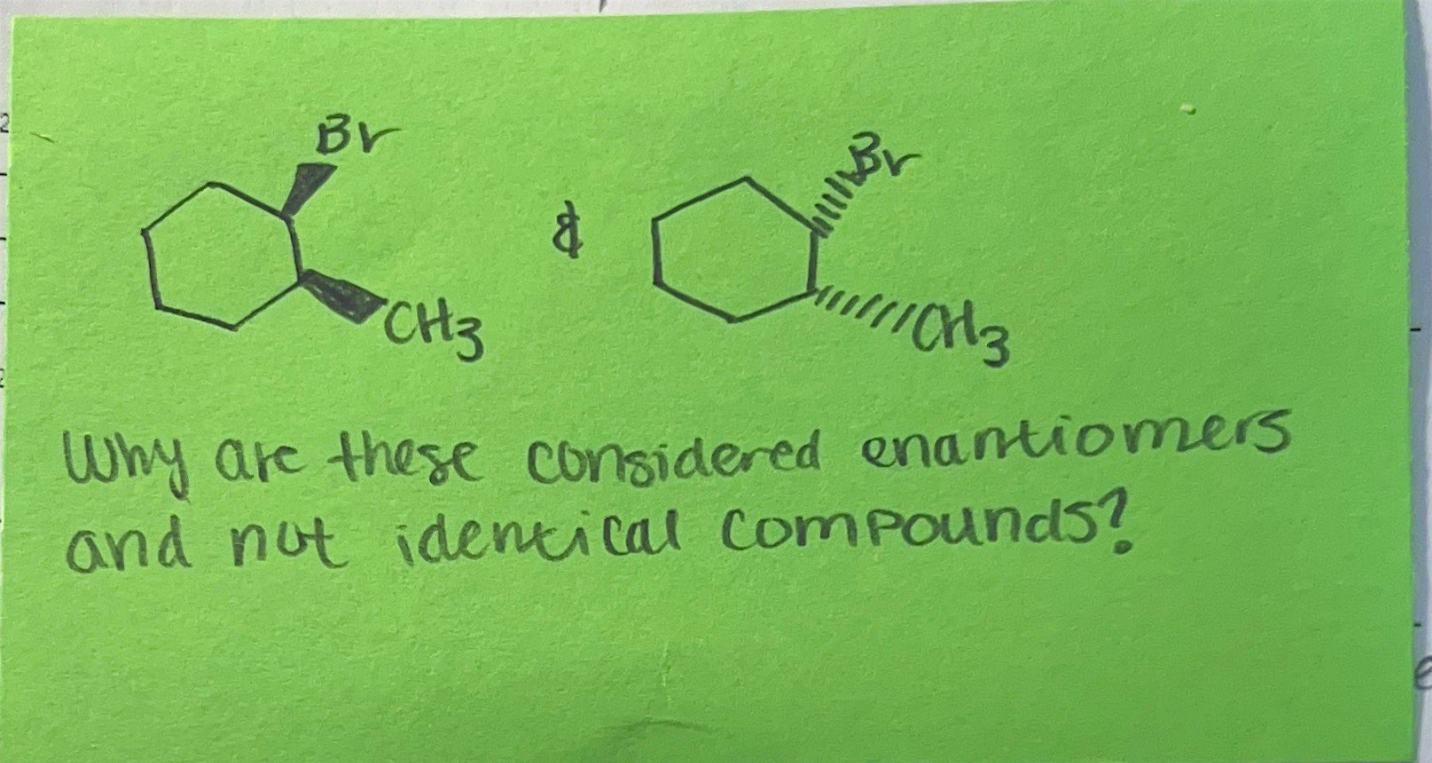 Br
&
Br
CH3
CH3
Why are these considered enantiomers
and not identical compounds?